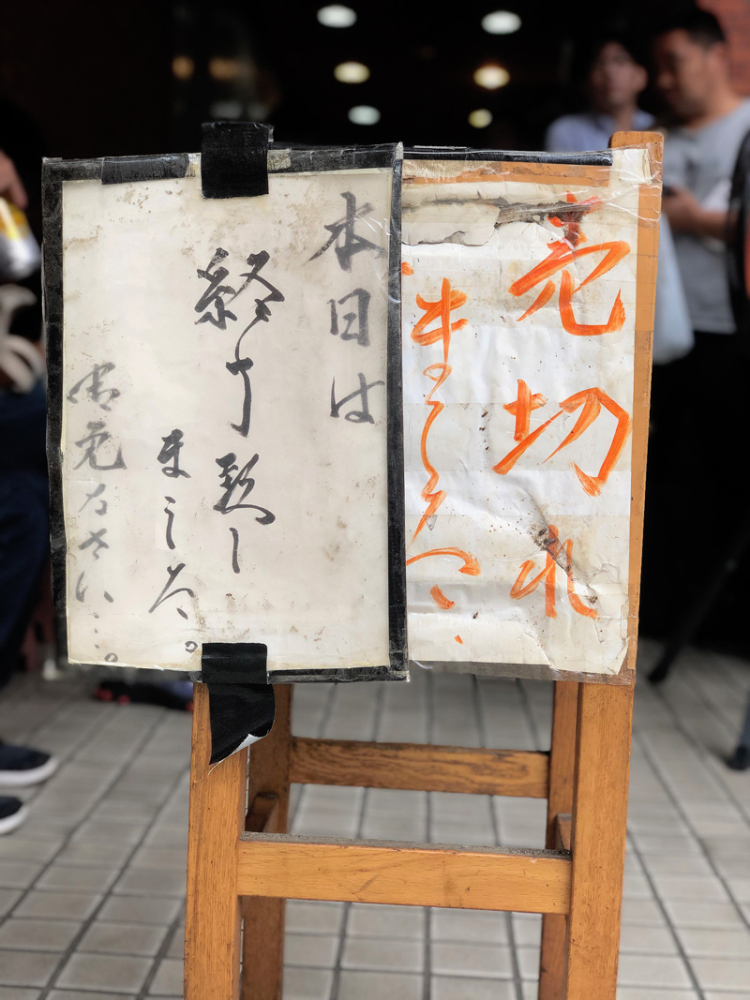 売切れ
ました
本日は
終了致し
ました。
御免なさい…。